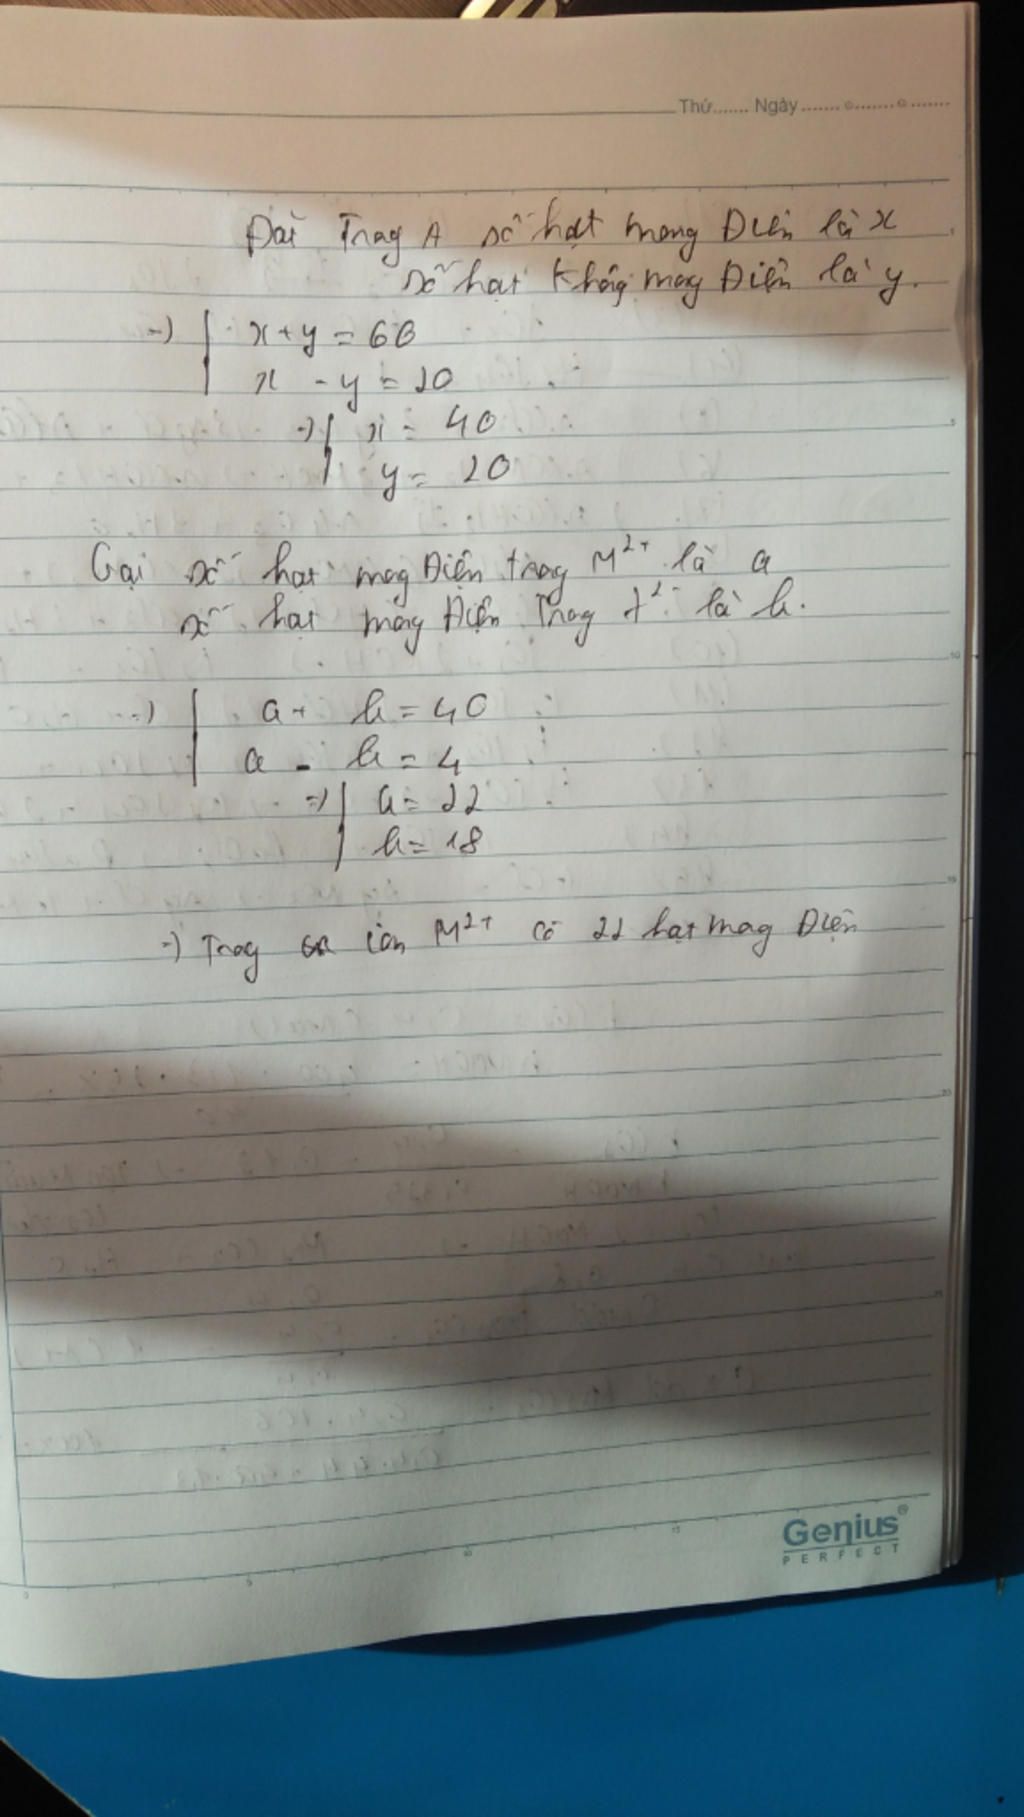 Thứ....... Ngày.......
Đặt Trong A số hạt mang Điện là x
số hạt không mag Điện là y.
=) x + y = 60
x - y = 20
=) x = 40
y = 20
Gọi số hạt mag Điện trog M²⁺ là a
số hạt mang Điện Trog là b.
=) a + b = 40
a - b = 4
=) a = 22
b = 18
=) Trog ion M²⁺ có 22 hạt mag Điện
Genius
PERFECT